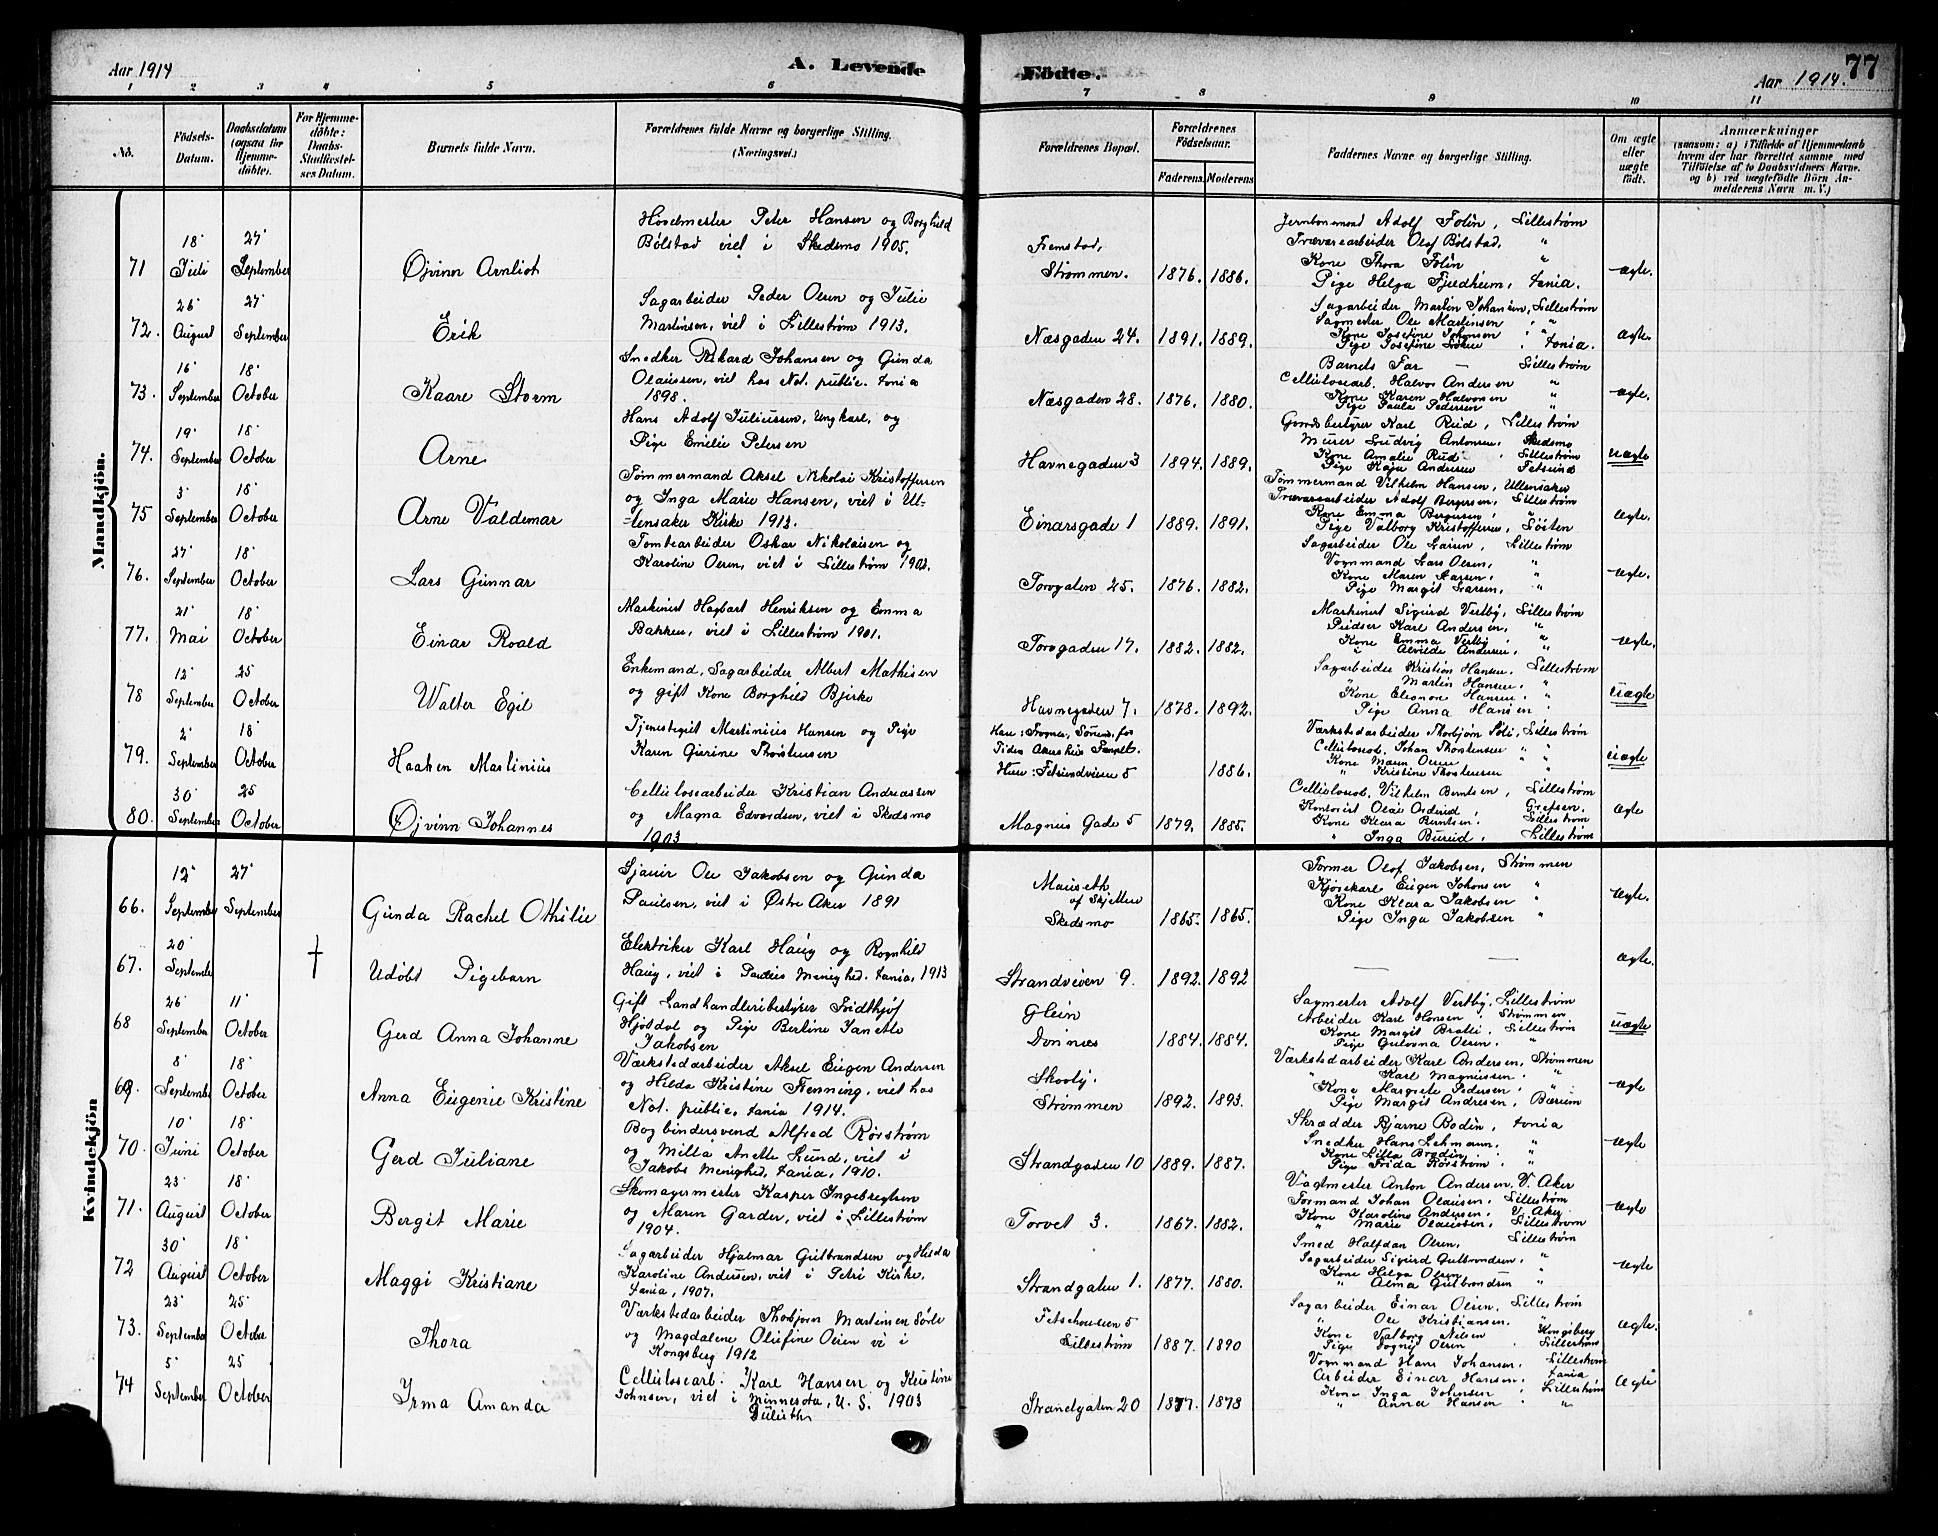 Aar 1914
A. Levende
Födte.
Aar 1914.
77
1 2 3 4 5 6 7 8 9 10 11
No.
Födsels-
Datum.
Daabsdatum
(ogsaa for
Hjemme-
döbte).
For Hjemme-
döbte:
Daabs-
Stadfæstel-
ses Datum.
Barnets fulde Navn.
Forældrenes fulde Navne og borgerlige Stilling.
(Næringsvei.)
Forældrenes Bopæl.
Forældrenes
Födselsaar.
Faderens.
Moderens
Faddernes Navne og borgerlige Stilling.
Om ægte
eller
uægte
födt.
Anmærkninger
(saasom: a) i Tilfælde af Hjemmedaab
hvem der har forrettet samme med
Tilföielse af to Daabsvidners Navne.
og b) ved uægtefödte Börn An-
melderens Navn m. V.)
Mandkjön.
71
18
Juli
27
September
Øjvinn Arnliot
Hovelmester Peter Hansen og Borghild
Bølstad viet i Skedsmo 1905.
Fremstad,
Strømmen.
1876. 1886.
Jernbanmand Adolf Folin, Lillestrøm
Trævarearbeider Olaf Bølstad, "
Kone Thora Folin "
Pige Helga Fjeldheim, Xania.
ægte.
72.
26
August
27
September
Erik
Sagarbeider Peder Olsen og Julie
Martinsen, viet i Lillestrøm 1913.
Næsgaden 24.
1891. 1889.
Sagarbeider Martin Johansen, Lillestrøm
Sagmester Ole Martinsen "
Kone Josefine Johansen "
Pige Josefine
ægte.
73.
16
September
18
October
Kaare Storm
Snedker Rikard Johansen og Gunda
Olaussen, viet hos Not. public. Xania
1898.
Næsgaden 28.
1876. 1880.
Barnets Far — Lillestrøm
Cellulosearb. Halvor Andersen "
Kone Karen Halvorsen "
Pige Paula Pedersen "
ægte.
74.
19
September
18
October
Arne
Hans Adolf Juliussen, Ungkarl, og
Pige Emilie Petersen
Havnegaden 3
1894. 1889.
Gaardsbestyrer Karl Rud, Lillestrøm
Murer Ludvig Antonsen, Skedsmo
Kone Amalie Rud, Lillestrøm
Pige Kaja Andresen Fetsund
uægte
75
3
September
18
October
Arne Valdemar
Tømmermand Aksel Nikolai Kristoffersen
og Inga Marie Hansen, viet i Ul-
lensaker Kirke 1913.
Einarsgade 1
1889. 1891.
Tømmermand Vilhelm Hansen, Ullensaker
Trævarearbeider Adolf Bergersen, Lillestrøm
Kone Emma Bergersen, "
Pige Valborg Kristoffersen, Løiten
ægte.
76.
27
September
18
October
Lars Gunnar
Tomtearbeider Oskar Nikolaisen og
Karoline Olsen, viet i Lillestrøm 1903.
Torvgaten 25.
1876. 1882.
Sagarbeider Ole Larsen, Lillestrøm
Vognmand Lars Olsen, "
Kone Maren Larsen, "
Pige Margit Larsen, "
ægte.
77.
21
Mai
18
October
Einar Roald
Maskinist Hagbart Henriksen og Emma
Bakken, viet i Lillestrøm 1901.
Torvgaden 17.
1882. 1882.
Maskinist Sigurd Vestby, Lillestrøm
Pudser Karl Andersen, "
Kone Emma Vestby, "
" Alvilde Andersen, "
ægte.
78
12
September
25
October
Walter Egil
Enkemand, Sagarbeider Albert Mathisen
og gift Kone Borghild Bjirke
Havnegaden 7.
1878. 1892.
Sagarbeider Kristian Hansen, Lillestrøm
" Martin Hansen, "
Kone Eleonora Hansen, "
Pige Anna Hansen "
uægte
79.
2
September
18
October
Haaken Martinius
Tjenestegut Martinius Hansen og Pige
Karen Gurine Thorstensen
Han: Frogner, Sørum, for
Tiden Akershus Landst.
Hun: Fetsundveien 5
1886.
Værkstedarbeider Thorbjørn Søli, Lillestrøm
Cellulosearb. Johan Thorstensen " "
Kone Maren Olsen "
" Kristine Thorstensen "
uægte
80.
30
September
25
October
Øjvinn Johannes
Cellulosearbeider Kristian Andreassen
og Magna Edvardsen, viet i Skedsmo
1903
Magnus Gade 5
1879. 1885.
Cellulosearb. Vilhelm Berntsen, Lillestrøm
Kontorist Olai Orderud, Grefsen.
Kone Klara Berntsen, Lillestrøm
" Inga Burud, Lillestrøm
ægte
Kvindekjön
66.
12
September
27
September
Gunda Rachel Othilie
Sjauer Ole Jakobsen og Gunda
Paulsen, viet i Østre Aker 1891
Mauseth
af Skjetten
Skedsmo
1865. 1865.
Former Olaf Jakobsen, Strømmen
Kjørekarl Eugen Johansen "
Kone Klara Jakobsen "
Pige Inga Jakobsen "
ægte.
67.
20
Septembe
†
Udøbt Pigebarn
Elektriker Karl Haug og Ragnhild
Haug, viet i Paulus Menighed. Xania, 1913
Strandveien 9.
1892. 1892
— —
ægte.
68
26
September
11
October
Gerd Anna Johanne
Gift Landhandleribestyrer Fridthjof
Hjøldal og Pige Bertine Janette
Jakobsen
Glein
Dønnes
1884. 1884.
Sagmester Adolf Vestby, Lillestrøm
Arbeider Karl Hansen, Strømmen
Kone Margit Bratli, Lillestrøm
Pige Gulovna Olsen, "
uægte
69.
8
September
18
October
Anna Eugenie Kristine
Værkstedarbeider Aksel Eugen Andersen
og Hilda Kristine Henning, viet hos
Not. public, Xania 1914.
Skovly,
Strømmen
1892. 1893.
Værkstedarbeider Karl Andersen, Strømmen
" Karl Magnussen, "
Kone Margrete Pedersen, "
Pige Margit Andresen, Bærum
ægte
70.
10
Juni
18
October
Gerd Juliane
Bogbindersvend Alfred Rørstrøm
og Milla Anette Lund, viet i
Jakobs Menighed, Xania, 1910.
Strandgaden 10
1889. 1887.
Skrædder Bjarne Bodin, Xania
Snedker Hans Lehmann, "
Kone Lilla Brodin, "
Pige Frida Rørstrøm, "
ægte
71.
23
August
18
October
Bergit Marie
Skomagermester Kasper Ingebregtsen
og Maren Garder, viet i Lillestrøm
1904.
Torvet 3.
1867. 1882.
Vagtmester Anton Andersen, V. Aker
Formand Johan Olausen, Lillestrøm
Kone Karoline Andersen, V. Aker
" Marie Olaussen, Lillestrøm
ægte
72
30
August
18
October
Maggi Kristiane
Sagarbeider Hjalmar Gulbrandsen og Hilda
Karoline Andersen, viet i Petri Kirke,
Xania, 1907.
Strandgaten 1.
1877. 1880.
Smed Halfdan Olsen, Lillestrøm
Sagarbeider Sigurd Gulbrandsen, "
Kone Helga Olsen "
" Alma Gulbrandsen "
ægte
73.
23
September
25
October
Thora
Værkstedarbeider Thorbjørn Martinsen Sørli
og Magdalene Olufine Olsen vi i
Kongsberg 1912
Fetschouseen 5
Lillestrøm
1887. 1890
Sagarbeider Einar Olsen, Lillestrøm
" Ole Kristiansen, "
Kone Valborg Nilsen Kongsberg
Pige Sogny Olsen Lillestrøm
ægte.
74
5
September
25
October
Irma Amanda
Cellulosearb. Karl Hansen og Kristine
Johnsen, viet i Minnesota, U. S. 1903
Duluth
Strandgaten 20
1877. 1878
Vognmand Hans Johansen, Lillestrøm
Arbeider Einar Hansen, Xania
Kone Inga Johnsen, Lillestrøm
" Anna Hansen "
Ægte